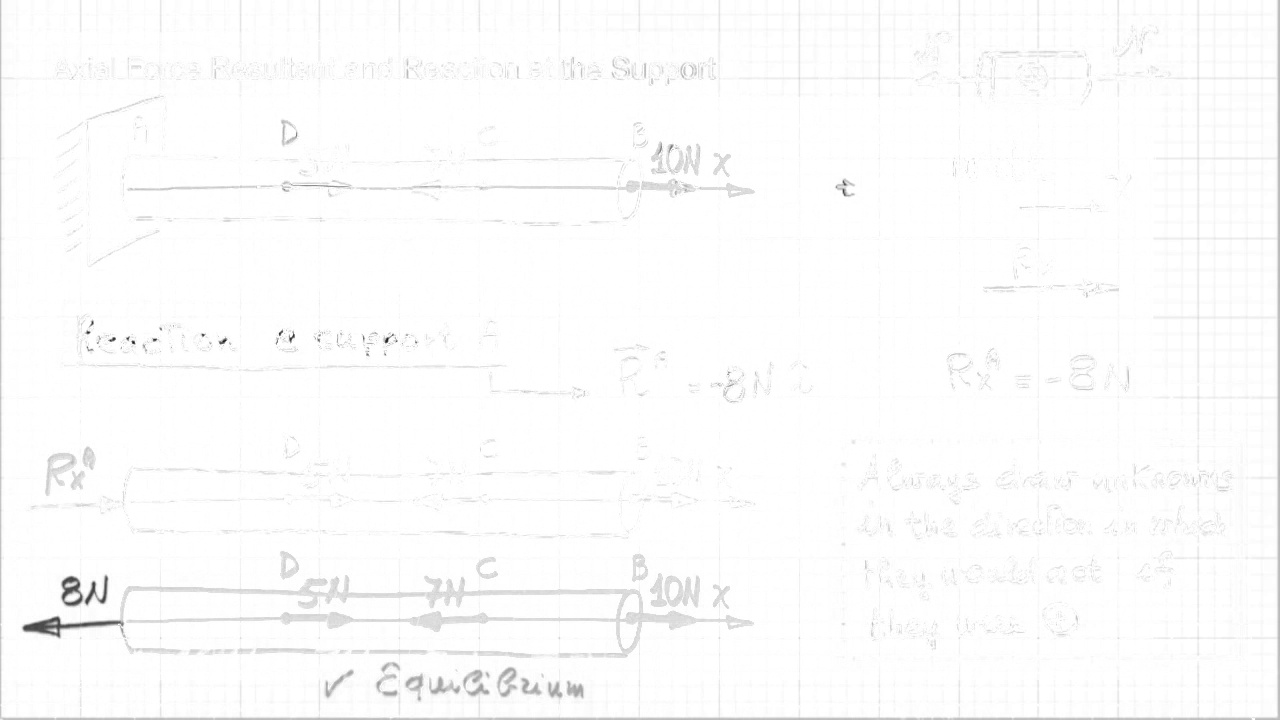 Axial Force Resultant and Reaction at the Support
N N
A D 5N 7N C B 10N x
+
Rx
Reaction @ support A
R^A = -8N x̂ RxA = -8N
D C B
RxA 5N 7N 10N x
Always draw unknowns
in the direction in which
they would act if
they were +
D C B
8N 5N 7N 10N x
✓ Equilibrium